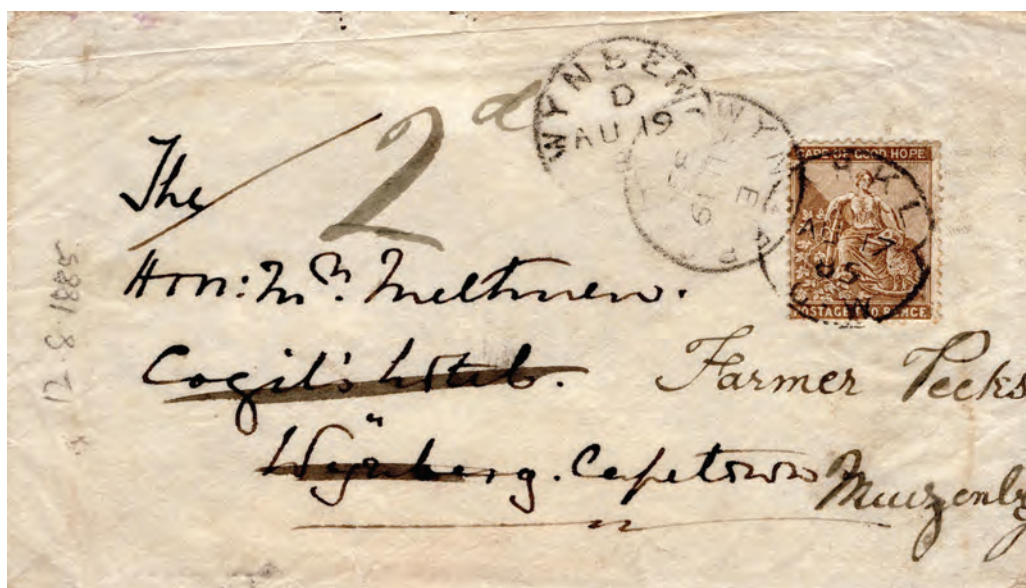 WYNBERG
D
AU 19
2d
CAPE OF GOOD HOPE
AU 17
85
POSTAGE TWO PENCE
The
Hon: Mr. Methuen.
Cogil's Hotel.
Farmer Pecks
Wynberg. Capetown
Muizenbg
12·8·1885